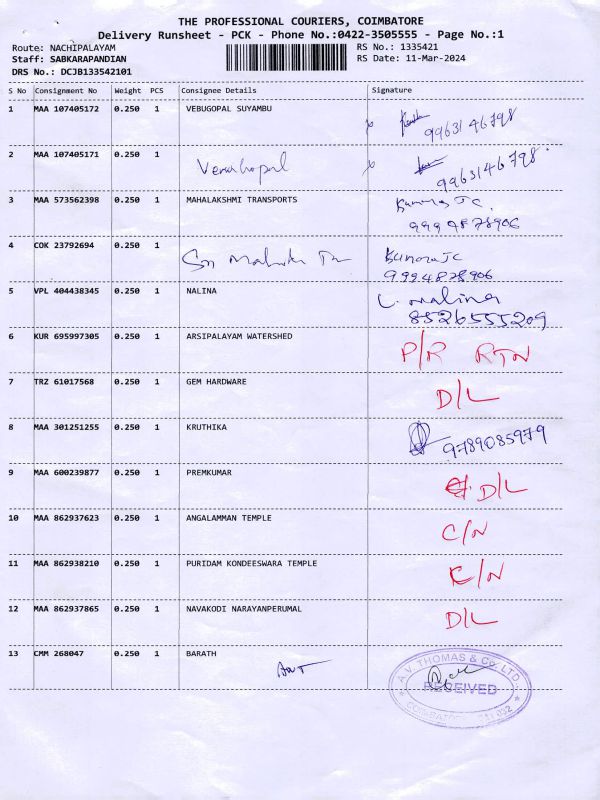 THE PROFESSIONAL COURIERS, COIMBATORE
Delivery Runsheet - PCK - Phone No.:0422-3505555 - Page No.:1
Route: NACHIPALAYAM
RS No.: 1335421
Staff: SABKARAPANDIAN
RS Date: 11-Mar-2024
DRS No.: DCJB133542101
S No Consignment No Weight PCS Consignee Details Signature
1 MAA 107405172 0.250 1 VEBUGOPAL SUYAMBU
9963146798
2 MAA 107405171 0.250 1
9963146798
3 MAA 573562398 0.250 1 MAHALAKSHMI TRANSPORTS
9994878906
4 COK 23792694 0.250 1
9994878906
5 VPL 404438345 0.250 1 NALINA L. Nalina
8526555209
6 KUR 695997305 0.250 1 ARSIPALAYAM WATERSHED P/R RTN
7 TRZ 61017568 0.250 1 GEM HARDWARE D/L
8 MAA 301251255 0.250 1 KRUTHIKA 9789085979
9 MAA 600239877 0.250 1 PREMKUMAR D/L
10 MAA 862937623 0.250 1 ANGALAMMAN TEMPLE C/N
11 MAA 862938210 0.250 1 PURIDAM KONDEESWARA TEMPLE C/N
12 MAA 862937865 0.250 1 NAVAKODI NARAYANPERUMAL D/L
13 CMM 268047 0.250 1 BARATH
A.V. THOMAS & CO. LTD.,
RECEIVED